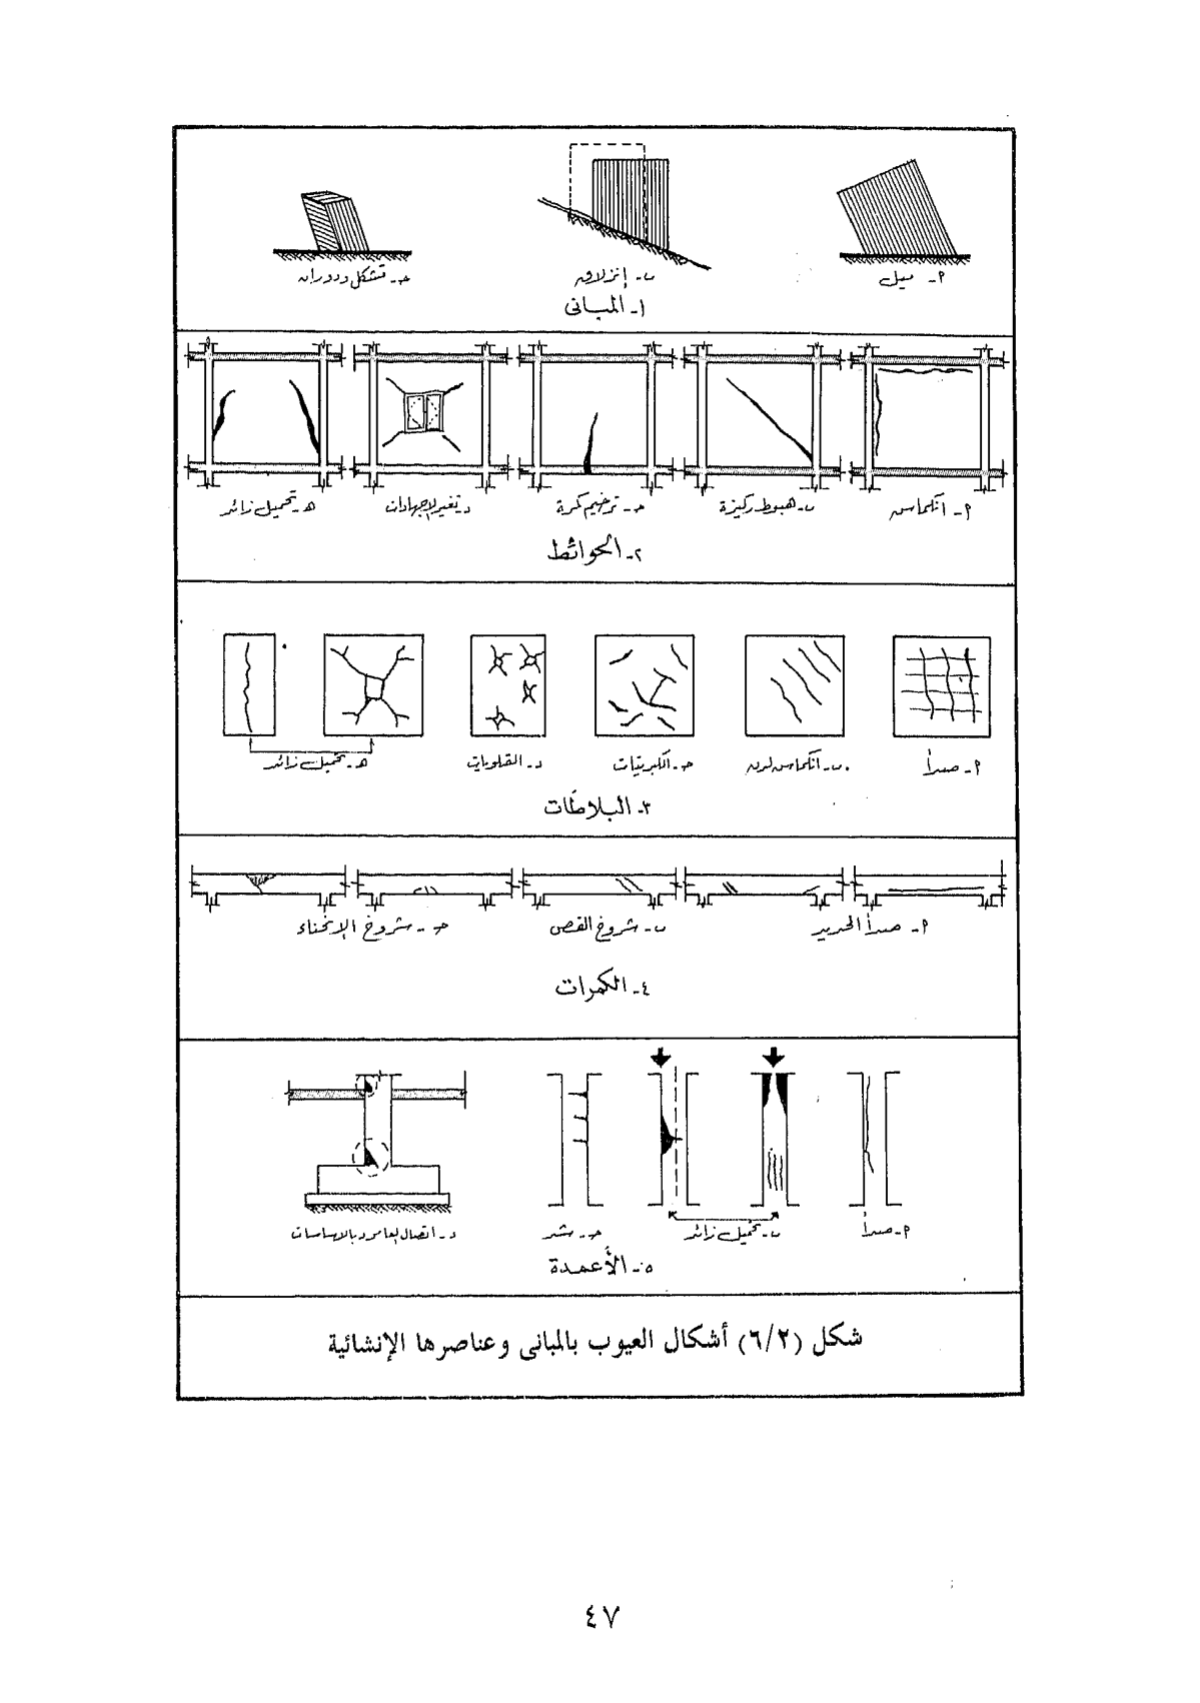 أ- ميل
ب- إنزلاق
ح- تشكل ودوران
١- المبانى
أ- انكماس
ب- هبوط ركيزة
ح- ترخيم كمرة
د- تغير الاجهادات
ه- تحميل زائد
٢- الحوائط
أ- صدأ
ب- انكماس لدن
ح- الكبريتات
د- القلويات
ه- تحميل زائد
٣- البلاطات
أ- صدأ الحديد
ب- شروخ القص
ح- شروخ الإنحناء
٤- الكمرات
أ- صدأ
ب- تحميل زائد
د- اتصال العامود بالاساسات
٥- الأعمدة
شكل (٦/٢) أشكال العيوب بالمبانى وعناصرها الإنشائية
٤٧